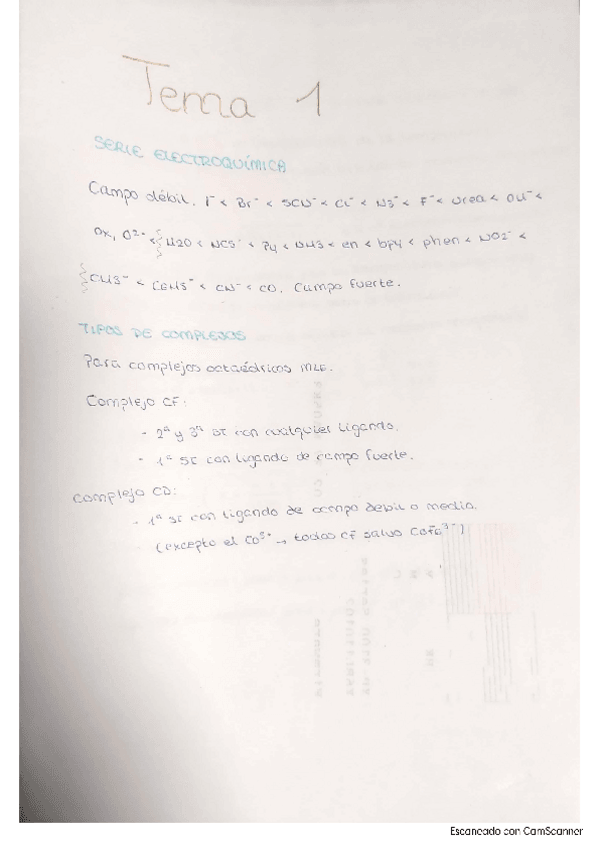 Tema 1
SERIE ELECTROQUÍMICA
Campo débil, I⁻ < Br⁻ < SCN⁻ < Cl⁻ < N3⁻ < F⁻ < urea < OH⁻ <
Ox, O²⁻ < { H2O < NCS⁻ < Py < NH3 < en < bpy < phen < NO2⁻ <
{ CH3⁻ < C6H5⁻ < CN⁻ < CO. Campo fuerte.
TIPOS DE COMPLEJOS
Para complejos octaédricos ML6.
Complejo CF:
- 2ª y 3ª ST con cualquier ligando.
- 1ª ST con ligando de campo fuerte.
Complejo CD:
- 1ª ST con ligando de campo debil o medio.
(excepto el Co³⁺ → todos CF salvo CoF6³⁻)
Escaneado con CamScanner